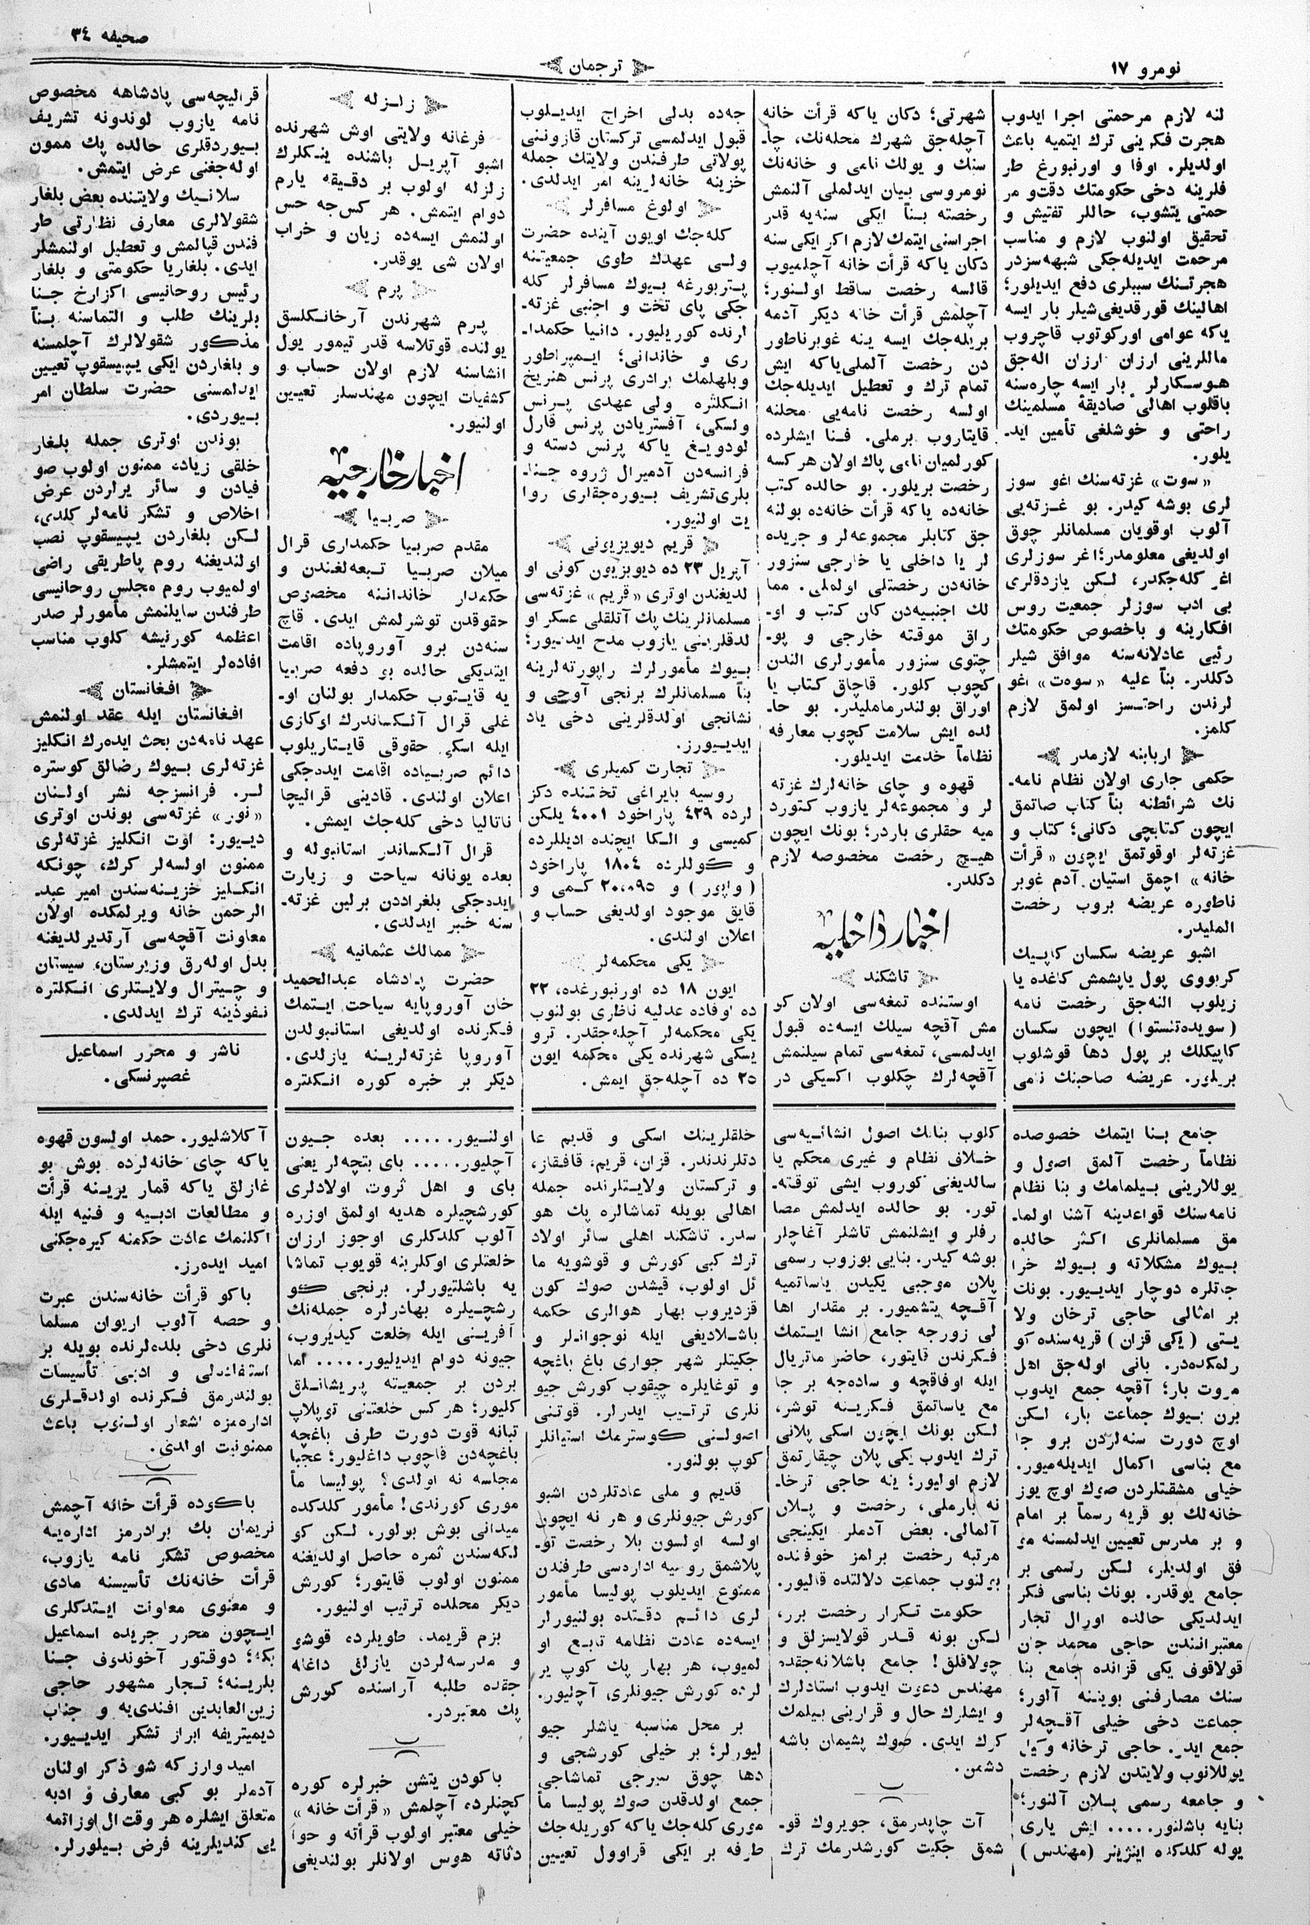 صحیفه ٣٤
ترجمان
نومرو ١٧
لنه لازم مرحمتی اجرا ایدوب
هجرت فکرینی ترك ایتمیه باعث
اولدیلر. اوفا و اورنبورغ طر
فلرینه دخی حکومتك دقت و مر
حمتی یتشوب، حاللر تفتیش و
تحقیق اولنوب لازم و مناسب
مرحمت ایدیله‌جکی شبهه‌سزدر
هجرتنك سببلری دفع ایدیلور؛
اهالینك قورقدیغی شیلر بار ایسه
یاکه عوامی اورکوتوب قاچروب
ماللرینی ارزان ارزان اله‌جق
هوسکارلر بار ایسه چاره‌سنه
باقلوب اهالیٔ صادیقهٔ مسلمینك
راحتی و خوشلغی تأمین اید‍
یلور.
«سوت» غزته‌سنك اغو سوز
لری بوشه کیدر. بو غزته‌یی
آلوب اوقویان مسلمانلر چوق
اولدیغی معلومدر؛ اغر سوزلری
اغر کله‌جکدر، لکن یازدقلری
بی ادب سوزلر جمعیت روس
افکارینه و باخصوص حکومتك
رئیی عادلانه‌سنه موافق شیلر
دکلدر. بناً علیه «سوەت» اغو
لرندن راحتسز اولمق لازم
کلمز.
اربابنه لازمدر
حکمی جاری اولان نظام نامه‌
نك شرائطنه بناً کتاب صاتمق
ایچون کتابچی دکانی؛ کتاب و
غزته‌لر اوقوتمق ایچون «قرأت
خانه» اچمق استیان آدم غوبر
ناطوره عریضه بروب رخصت
الملیدر.
اشبو عریضه سکسان کاپیك
کربووی پول یاپشمش کاغده یا
زیلوب النه‌جق رخصت نامه
(سویده‌تنستوا) ایچون سکسان
کاپیکلك بر پول دها قوشلوب
بریلور. عریضه صاحبنك نامی
شهرتی؛ دکان یاکه قرأت خانه
آچله‌جق شهرك محله‌نك، چا
سنك و یولك نامی و خانه‌نك
نومروسی بیان ایدلملی آلنمش
رخصته بناً ایکی سنه‌یه قدر
اجراسنی ایتمك لازم اکر ایکی سنه
دکان یاکه قرأت خانه آچلمیوب
قالسه رخصت ساقط اولنور؛
آچلمش قرأت خانه دیکر آدمه
بریله‌جك ایسه ینه غوبرناطور
دن رخصت آلملی یاکه ایش
تمام ترك و تعطیل ایدیله‌جك
اولسه رخصت نامه‌یی محلنه
قایتاروب برملی. فنا ایشلرده
کورلمیان نامی پاك اولان هر کسه
رخصت بریلور. بو حالده کتب
خانه‌ده یاکه قرأت خانه‌ده بولنه
جق کتابلر مجموعه‌لر و جریده
لر یا داخلی یا خارجی سنزور
خانه‌دن رخصتلی اولملی. مما
لك اجنبیه‌دن کان کتب و او‍
راق موقته خارجی و پو‍
چتوی سنزور مأمورلری الندن
کچوب کلور. قاچاق کتاب یا
اوراق بولندرماملیدر. بو حا‍
لده ایش سلامت کچوب معارفه
نظاماً خدمت ایدیلور.
قهوه و چای خانه‌لرك غزته
لر و مجموعه‌لر یازوب کتورد
میه حقلری باردر؛ بونك ایچون
هیچ رخصت مخصوصه لازم
دکلدر.
اخبار داخلیه
تاشکند
اوستنده تمغه‌سی اولان کر
مش آقچه سیلك ایسه‌ده قبول
ایدلمسی، تمغه‌سی تمام سیلنمش
آقچه‌لرك چکلوب اکسیکی در
جه‌ده بدلی اخراج ایدیلوب
قبول ایدلمسی ترکستان قازونی
پولاتی طرفندن ولایتك جمله
خزینه خانه‌لرینه امر ایدلدی.
اولوغ مسافرلر
کله‌جك اویون آینده حضرت
ولی عهدك طوی جمعیتنه
پتربورغه بیوك مسافرلر کله
جکی پای تخت و اجنبی غزته‌
لرنده کوریلیور. دانیا حکمدا‍
ری و خاندانی؛ ایمپراطور
ویلهلمك برادری پرنس هنریخ
انکلتره ولی عهدی پرنس
ولسکی، آفستریادن پرنس قارل
لودویغ یاکه پرنس دسته و
فرانسه‌دن آدمیرال ژروه جنا‍
بلری تشریف بیوره‌جقلری روا
یت اولنیور.
قریم دیویزیونی
آپریل ٢٣ ده دیویزیون کونی او
لدیغندن اوتری «قریم» غزته‌سی
مسلمانلرینك پك آتلقلی عسکر او
لدقلرینی یازوب مدح ایدیور؛
بیوك مأمورلرك راپورته‌لرینه
بناً مسلمانلرك برنجی آوجی و
نشانجی اولدقلرینی دخی یاد
ایدیورز.
تجارت کمیلری
روسیه بایراغی تختنده دکز
لرده ٤٣٩ پاراخود ٤٠٠١ یلکن
کمیسی و الکا ایچنده ادیللرده
و کوللرده ١٨٠٤ پاراخود
(واپور) و ٢٠،٠٩٥ کمی و
قایق موجود اولدیغی حساب و
اعلان اولندی.
یکی محکمه‌لر
ایون ١٨ ده اورنبورغده، ٢٢
ده اوفاده عدلیه ناظری بولنوب
یکی محکمه‌لر آچله‌جقدر. ترو
یسکی شهرنده یکی محکمه ایون
٢٥ ده آچله‌جق ایمش.
زلزله
فرغانه ولایتی اوش شهرنده
اشبو آپریل باشنده ینکلرك
زلزله اولوب بر دقیقه یارم
دوام ایتمش. هر کس‌جه حس
اولنمش ایسه‌ده زیان و خراب
اولان شی یوقدر.
پرم
پرم شهرندن آرخانکلسق
یولنده قوتلاسه قدر تیمور یول
انشاسنه لازم اولان حساب و
کشفیات ایچون مهندسلر تعیین
اولنیور.
اخبار خارجیه
صربیا
مقدم صربیا حکمداری قرال
میلان صربیا تبعه‌لغندن و
حکمدار خاندانینه مخصوص
حقوقدن توشرلمش ایدی. قاچ
سنه‌دن برو آوروپاده اقامت
ایتدیکی حالده بو دفعه صربیا
یه قایتوب حکمدار بولنان او‍
غلی قرال آلکساندرك اوکازی
ایله اسکی حقوقی قایتاریلوب
دائم صربیاده اقامت ایده‌جکی
اعلان اولندی. قادینی قرالیچا
ناتالیا دخی کله‌جك ایمش.
قرال آلکساندر استانبوله و
بعده یونانه سیاحت و زیارت
ایده‌جکی بلغراددن برلین غزته‌
سنه خبر ایدلدی.
ممالك عثمانیه
حضرت پادشاه عبدالحمید
خان آوروپایه سیاحت ایتمك
فکرنده اولدیغی استانبولدن
آوروپا غزته‌لرینه یازلدی.
دیکر بر خبره کوره انکلتره
قرالیچه‌سی پادشاهه مخصوص
نامه یازوب لوندونه تشریف
بیوردقلری حالده پك ممون
اوله‌جغنی عرض ایتمش.
سلانیك ولایتنده بعض بلغار
شقولالری معارف نظارتی طر
فندن قپالمش و تعطیل اولنمشلر
ایدی. بلغاریا حکومتی و بلغار
رئیس روحانیسی اکزارخ جنا
بلرینك طلب و التماسنه بناً
مذکور شقولالرك آچلمسنه
و بلغاردن ایکی یپیسقوپ تعیین
ایدلمسنی حضرت سلطان امر
بیوردی.
بوندن اوتری جمله بلغار
خلقی زیاد، ممنون اولوب صو
فیادن و سائر یرلردن عرض
اخلاص و تشکر نامه‌لر کلدی،
لکن بلغاردن یپیسقوپ نصب
اولندیغنه روم پاطریقی راضی
اولمیوب روم مجلس روحانیسی
طرفندن سایلنمش مأمورلر صدر
اعظمه کورنیشه کلوب مناسب
افاده‌لر ایتمشلر.
افغانستان
افغانستان ایله عقد اولنمش
عهد نامه‌دن بحث ایده‌رك انکلیز
غزته‌لری بیوك رضالق کوستره
لر. فرانسزجه نشر اولنان
«نور» غزته‌سی بوندن اوتری
دیور: اوت انکلیز غزته‌لری
ممنون اولسه‌لر کرك، چونکه
انکلیز خزینه‌سندن امیر عبد‍
الرحمن خانه ویرلمکده اولان
معاونت آقچه‌سی آرتدیرلدیغنه
بدل اوله‌رق وزیرستان، سیستان
و چیترال ولایتلری انکلتره
نفوذینه ترك ایدلدی.
ناشر و محرر اسماعیل
غصپرنسکی.
جامع بنا ایتمك خصوصده
نظاماً رخصت آلمق اصول و
یوللارینی بیلمامك و بنا نظام
نامه‌سنك قواعدینه آشنا اولما‍
مق مسلمانلری اکثر حالده
بیوك مشکلاته و بیوك خرا
جتلره دوچار ایدیور. بونك
بر امثالی حاجی ترخان ولا
یتی (یکی قزان) قریه‌سنده کو
رلمکده‌در. بانی اوله‌جق اهل
مروت بار؛ آقچه جمع ایدوب
برن بیوك جماعت بار، لکن
اوچ دورت سنه‌لردن برو جا
مع بناسی اکمال ایدیله‌میور.
خیلی مشقتلردن صوك اوچ یوز
خانه‌لك بو قریه رسماً بر امام
و بر مدرس تعیین ایدلمسنه مو
فق اولدیلر، لکن رسمی بر
جامع یوقدر. بونك بناسی فکر
ایدلدیکی حالده اورال تجار
معتبرانندن حاجی محمد جان
قولاقوف یکی قزانده جامع بنا
سنك مصارفنی بویننه آلور؛
جماعت دخی خیلی آقچه‌لر
جمع ایدر. حاجی ترخانه وکیل
یوللانوب ولایتدن لازم رخصت
و جامعه رسمی پلان آلنور؛
بنایه باشلنور..... ایش یاری
یوله کلدکده اینژینر (مهندس)
کلوب بنانك اصول انشائیه‌سی
خلاف نظام و غیری محکم یا
سالدیغنی کوروب ایشی توقته‍
تور. بو حالده ایدلمش مصا
رفلر و ایشلنمش تاشلر آغاچلر
بوشه کیدر. بنایی بوزوب رسمی
پلان موجبی یکیدن یاساتمیه
آقچه یتشمیور. بر مقدار اها
لی زورجه جامع انشا ایتمك
فکرندن قایتور، حاضر ماتریال
ایله اوفاقچه و ساده‌جه بر جا
مع یاساتمق فکرینه توشر،
لکن بونك ایچون اسکی پلانی
ترك ایدوب یکی پلان چیقارتمق
لازم اولیور؛ ینه حاجی ترخا‍
نه بارملی، رخصت و پلان
آلمالی. بعض آدملر ایکینجی
مرتبه رخصت برلمز خوفنده
بولنوب جماعت دلالتده قالیور.
حکومت تکرار رخصت برر،
لکن بونه قدر قولایسزلق و
چولافلق! جامع باشلانه‌جقده
مهندس دعوت ایدوب استادلرك
و ایشلرك حال و قرارینی بیلمك
کرك ایدی. صوك پشیمان باشه
دشمن.
آت چاپدرمق، جویروك قو‍
شمق جکیت کورشدرمك ترك
خلقلرینك اسکی و قدیم عا
دتلرندندر. قزان، قریم، قافقاز،
و ترکستان ولایتلرنده جمله
اهالی بویله تماشالره پك هو
سدر. تاشکند اهلی سائر اولاد
ترك کبی کورش و قوشویه ما
ئل اولوب، قیشدن صوك کون
قزدیروب بهار هوالری حکمه
باشلادیغی ایله نوجوانلر و
جکیتلر شهر جواری باغ باغچه
و توغایلره چیقوب کورش جیو
نلری ترتیب ایدرلر. قوتنی
اصولنی کوسترمك استیانلر
کوپ بولنور.
قدیم و ملی عادتلردن اشبو
کورش جیونلری و هر نه ایچون
اولسه اولسون بلا رخصت تو‍
پلاشمق روسیه اداره‌سی طرفندن
ممنوع ایدیلوب پولیسا مأمور
لری دائم دقتده بولنیورلر
ایسه‌ده عادت نظامه تابع او
لمیوب، هر بهار پك کوپ یر
لرده کورش جیونلری، آچلیور.
بر محل مناسبه یاشلر جیو
لیورلر؛ بر خیلی کورشجی و
دها چوق سیرجی تماشاجی
جمع اولدقدن صوك پولیسا مأ
موری کله‌جك یاکه کوریله‌جك
طرفه بر ایکی قراوول تعیین
اولنیور..... بعده جیون
آچلیور..... بای بتچه‌لر یعنی
بای و اهل ثروت اولادلری
کورشچیلره هدیه اولمق اوزره
آلوب کلدکلری اوجوز ارزان
خلعتلری اوکلرینه قویوب تماشا
یه باشلتیورلر. برنجی کو
رشچیلره بهادرلره جمله‌نك
آفرینی ایله خلعت کیدیروب،
جیونه دوام ایدیلیور..... اما
بردن بر جمعیته پریشانلق
کلیور؛ هر کس خلعتنی توپلاپ
تبانه قوت دورت طرف باغچه
باغچه‌دن قاچوب داغلیور؛ عجبا
مجلسه نه اولدی؟ پولیسا مأ
موری کورندی! مأمور کلدکده
میدانی بوش بولور، لکن کو
لکه‌سندن ثمره حاصل اولدیغنه
ممنون اولوب قایتور؛ کورش
دیکر محلده ترتیب اولنیور.
بزم قریمد، طویلرده، قوشو
و مدرسه‌لردن یازلق داغله
جقده طلبه آراسنده کورش
پك معتبردر.
باکودن یتشن خبرلره کوره
کچنلرده، آچلمش «قرأت خانه»
خیلی معتبر اولوب قرأته و حوا
دثاته هوس اولانلر بولندیغی
آکلاشلیور. حمد اولسون قهوه
یاکه چای خانه‌لرده بوش بو
غازلق یاکه قمار یرینه قرأت
و مطالعات ادبیه و فنیه ایله
اکلنمك عادت حکمنه کیره‌جکنی
امید ایده‌رز.
باکو قرأت خانه‌سندن عبرت
و حصه آلوب اریوان مسلما
نلری دخی بلده‌لرنده بویله بر
استفاده‌لی و ادبی تأسیسات
بولندرمق فکرنده اولدقلری
اداره‌مزه اشعار اولنوب باعث
ممنونیت اولدی.
باکوده قرأت خانه آچمش
نریمان بك برادرمز اداره‌یه
مخصوص تشکر نامه یازوب،
قرأت خانه‌نك تأسیسنه مادی
و معنوی معاونت ایتدکلری
ایچون محرر جریده اسماعیل
بکه؛ دوقتور آخوندوف جنا
بلرینه؛ تجار مشهور حاجی
زین‌العابدین افندی‌یه و جناب
دیمیتریفه ابراز تشکر ایدیور.
امید وارز که شو ذکر اولنان
آدملر بو کبی معارف و ادبه
متعلق ایشلره هر وقت ال اوزاتمه
یی کندیلرینه فرض بیلورلر.